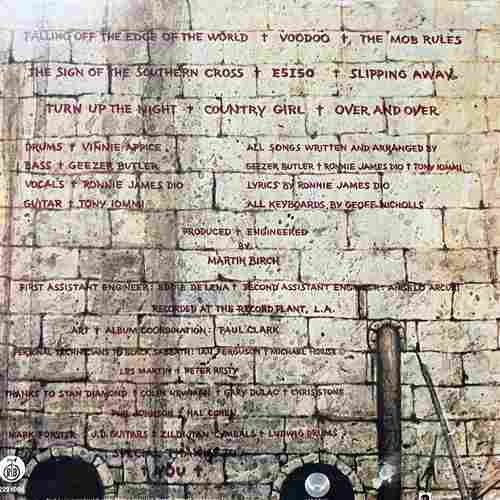 FALLING OFF THE EDGE OF THE WORLD † VOODOO †, THE MOB RULES
THE SIGN OF THE SOUTHERN CROSS † E5150 † SLIPPING AWAY
TURN UP THE NIGHT † COUNTRY GIRL † OVER AND OVER
DRUMS † VINNIE APPICE
BASS † GEEZER BUTLER
VOCALS † RONNIE JAMES DIO
GUITAR † TONY IOMMI
ALL SONGS WRITTEN AND ARRANGED BY
GEEZER BUTLER † RONNIE JAMES DIO † TONY IOMMI
LYRICS BY RONNIE JAMES DIO
ALL KEYBOARDS BY GEOFF NICHOLLS
PRODUCED † ENGINEERED
BY
MARTIN BIRCH
FIRST ASSISTANT ENGINEER: EDDIE DELENA † SECOND ASSISTANT ENGINEER: ANGELO ARCURI
RECORDED AT THE RECORD PLANT, L.A.
ART † ALBUM COORDINATION: PAUL CLARK
PERSONAL TECHNICIANS TO BLACK SABBATH: IAN FERGUSON † MICHAEL HOWSE
LES MARTIN † PETER RESTY
THANKS TO STAN DIAMOND † COLIN NEWMAN † GARY DULAC † CHRIS STONE
PHIL JOHNSON † HAL COHEN
MARK FORSTER J.D. GUITARS † ZILDJIAN CYMBALS † LUDWIG DRUMS
SPECIAL THANKS TO
† YOU †
RTB